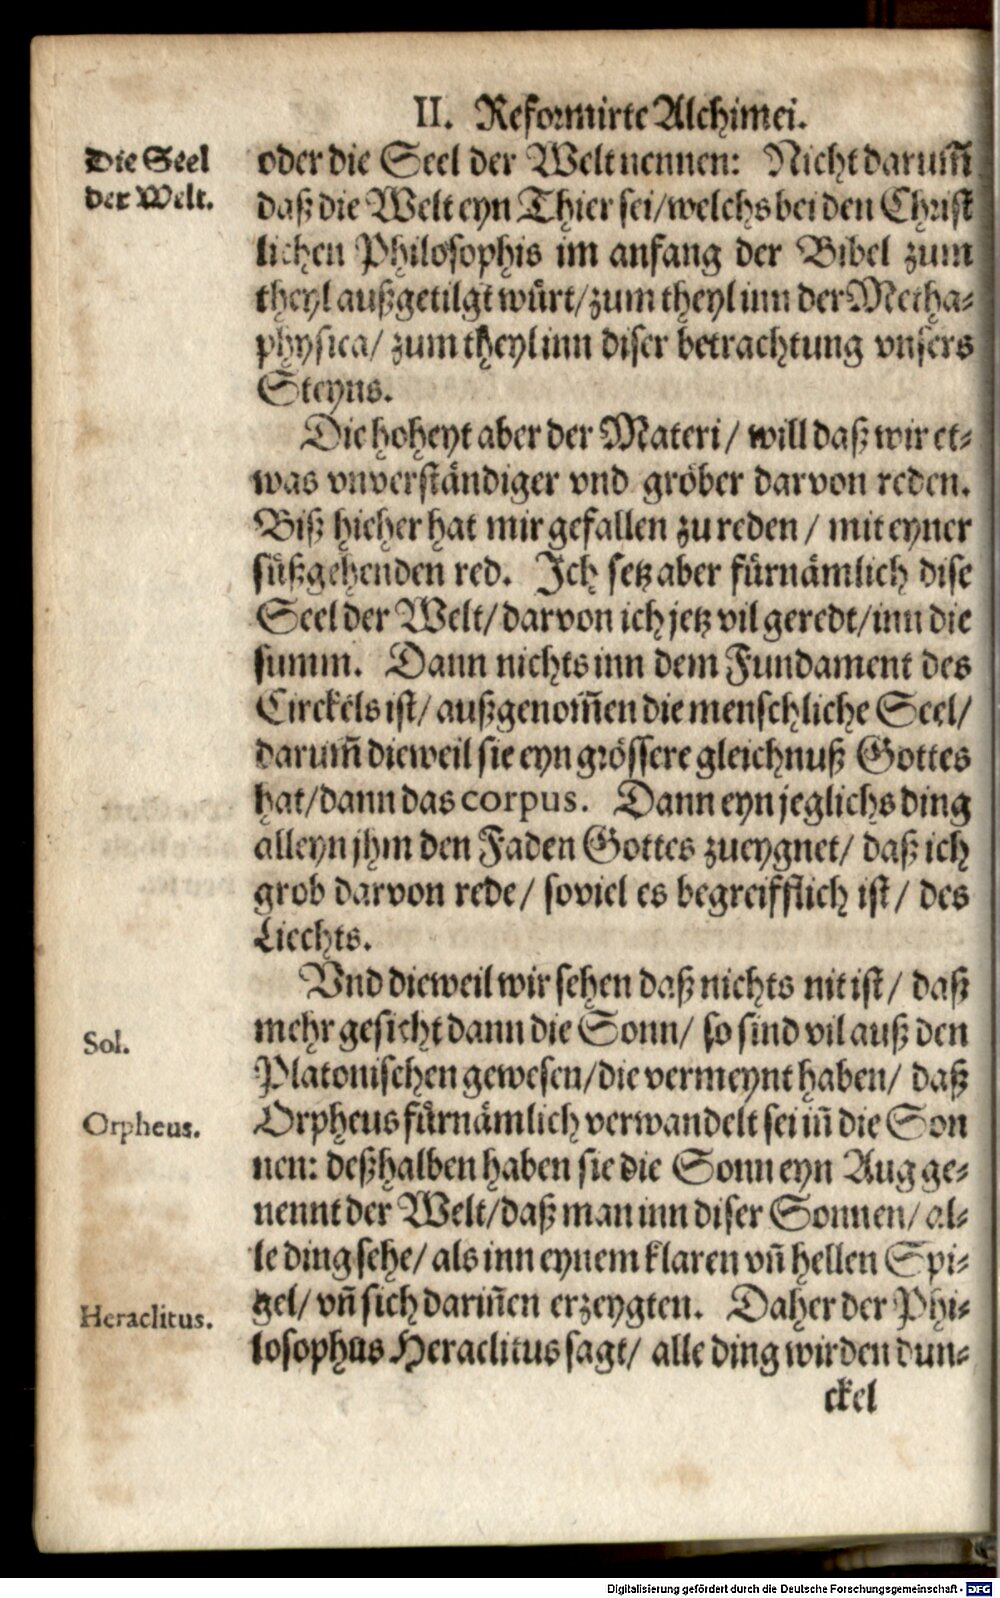 II. Reformirte Alchimei.
Die Seel
der Welt.
oder die Seel der Welt nennen: Nicht darum̃
daß die Welt eyn Thier sei/welchs bei den Christ
lichen Philosophis im anfang der Bibel zum
theyl außgetilgt würt/zum theyl inn der Metha-
physica/ zum theyl inn diser betrachtung vnsers
Steyns.
Die hoheyt aber der Materi/ will daß wir et-
was vnverständiger vnd gröber darvon reden.
Biß hieher hat mir gefallen zu reden / mit eyner
süßgehenden red. Ich setz aber fürnämlich dise
Seel der Welt/darvon ich jetz vil geredt/inn die
summ. Dann nichts inn dem Fundament des
Circkels ist/ außgenom̃en die menschliche Seel/
darum̃ dieweil sie eyn grössere gleichnuß Gottes
hat/dann das corpus. Dann eyn jeglichs ding
alleyn jhm den Faden Gottes zueygnet/ daß ich
grob darvon rede/ soviel es begreifflich ist/ des
Liechts.
Vnd dieweil wir sehen daß nichts nit ist/ daß
mehr gesicht dann die Sonn/ so sind vil auß den
Sol.
Platonischen gewesen/die vermeynt haben/ daß
Orpheus fürnämlich verwandelt sei iñ die Son
Orpheus.
nen: deßhalben haben sie die Sonn eyn Aug ge-
nennt der Welt/daß man inn diser Sonnen/ al-
le ding sehe/ als inn eynem klaren vñ hellen Spi-
gel/ vñ sich dariñen erzeygten. Daher der Phi-
Heraclitus.
losophus Heraclitus sagt/ alle ding wirden dun-
ckel
Digitalisierung gefördert durch die Deutsche Forschungsgemeinschaft - DFG